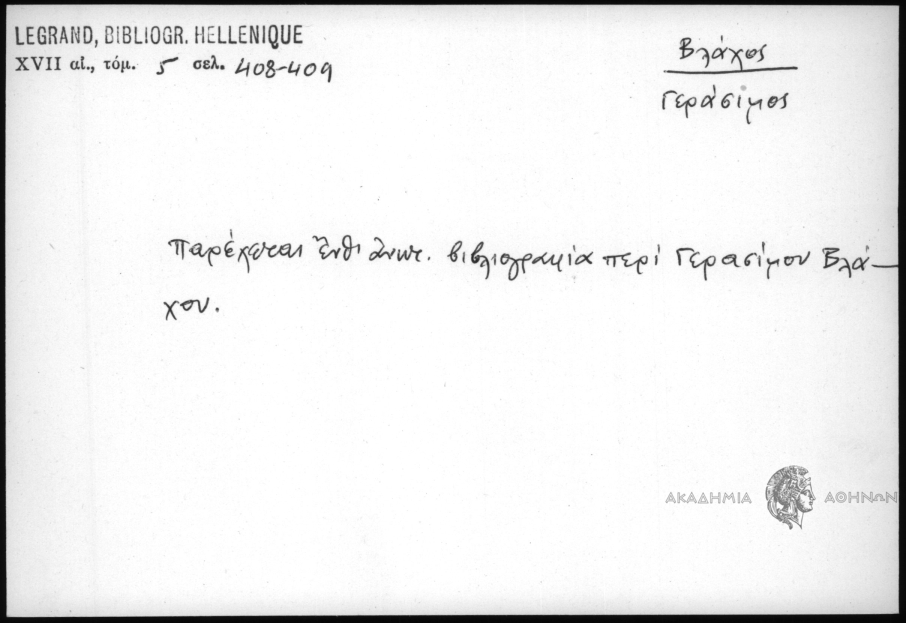 LEGRAND, BIBLIOGR. HELLENIQUE
XVII αἰ., τόμ. 5 σελ. 408-409
Βλάχος
Γεράσιμος
Παρέχεται βιβλιογραφία περί Γερασίμου Βλά-
χου.
ΑΚΑΔΗΜΙΑ ΑΘΗΝΩΝ